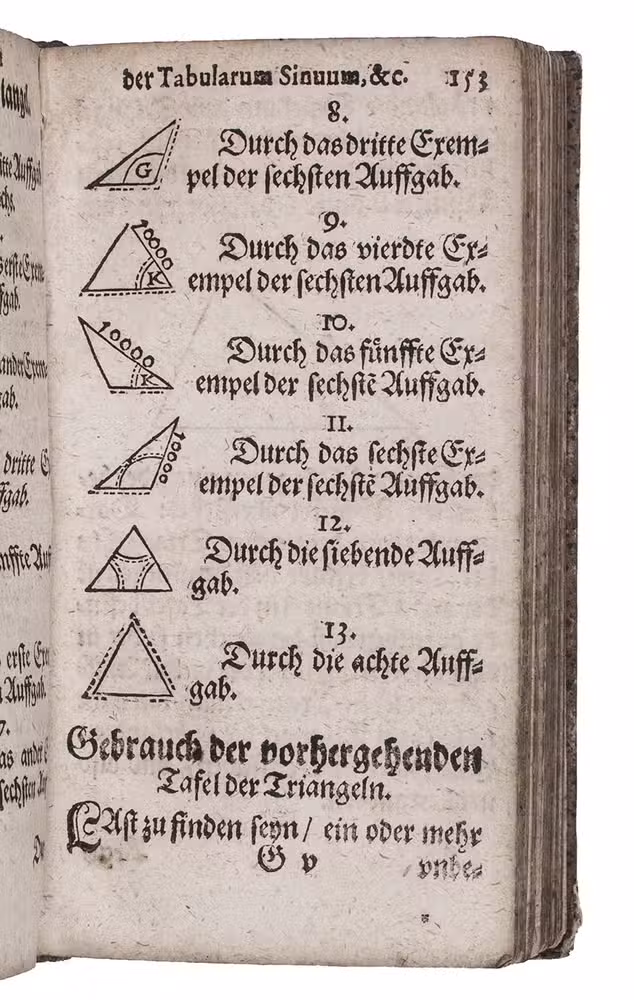 der Tabularum Sinuum, &c. 153
8.
Durch das dritte Exem⸗
pel der sechsten Auffgab.
G
9.
Durch das vierdte Ex⸗
empel der sechsten Auffgab.
10000
K
10.
Durch das fünffte Ex⸗
empel der sechstē Auffgab.
10000
K
11.
Durch das sechste Ex⸗
empel der sechstē Auffgab.
10000
12.
Durch die siebende Auff⸗
gab.
13.
Durch die achte Auff⸗
gab.
Gebrauch der vorhergehenden
Tafel der Triangeln.
LAst zu finden seyn / ein oder mehr
G v
vnbe⸗